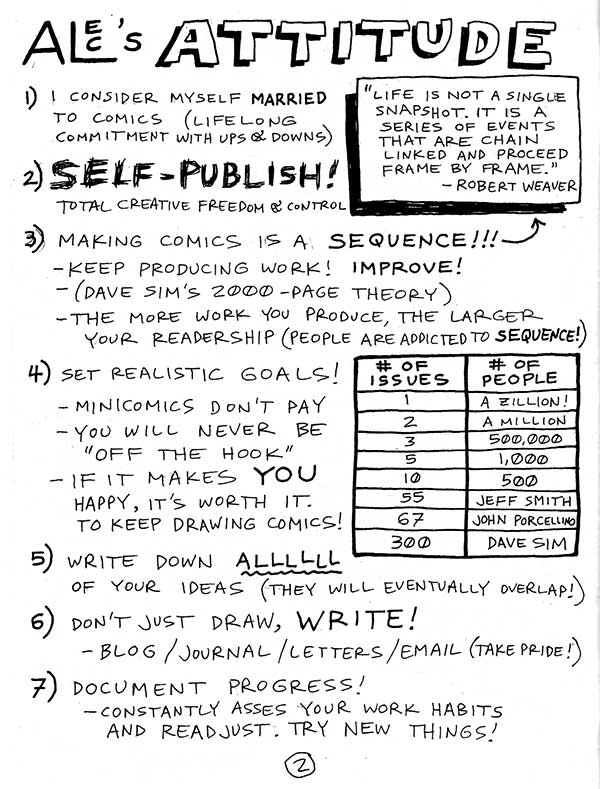 ALEC's ATTITUDE
1) I CONSIDER MYSELF MARRIED
TO COMICS (LIFELONG
COMMITMENT WITH UPS & DOWNS)
"LIFE IS NOT A SINGLE
SNAPSHOT. IT IS A
SERIES OF EVENTS
THAT ARE CHAIN
LINKED AND PROCEED
FRAME BY FRAME."
- ROBERT WEAVER
2) SELF-PUBLISH!
TOTAL CREATIVE FREEDOM & CONTROL
3) MAKING COMICS IS A SEQUENCE!!!
- KEEP PRODUCING WORK! IMPROVE!
- (DAVE SIM'S 2000-PAGE THEORY)
- THE MORE WORK YOU PRODUCE, THE LARGER
YOUR READERSHIP (PEOPLE ARE ADDICTED TO SEQUENCE!)
4) SET REALISTIC GOALS!
- MINICOMICS DON'T PAY
- YOU WILL NEVER BE
"OFF THE HOOK"
- IF IT MAKES YOU
HAPPY, IT'S WORTH IT.
TO KEEP DRAWING COMICS!
# OF ISSUES # OF PEOPLE
1 A ZILLION!
2 A MILLION
3 500,000
5 1,000
10 500
55 JEFF SMITH
67 JOHN PORCELLINO
300 DAVE SIM
5) WRITE DOWN ALLLLLL
OF YOUR IDEAS (THEY WILL EVENTUALLY OVERLAP!)
6) DON'T JUST DRAW, WRITE!
- BLOG / JOURNAL / LETTERS / EMAIL (TAKE PRIDE!)
7) DOCUMENT PROGRESS!
- CONSTANTLY ASSES YOUR WORK HABITS
AND READJUST. TRY NEW THINGS!
2